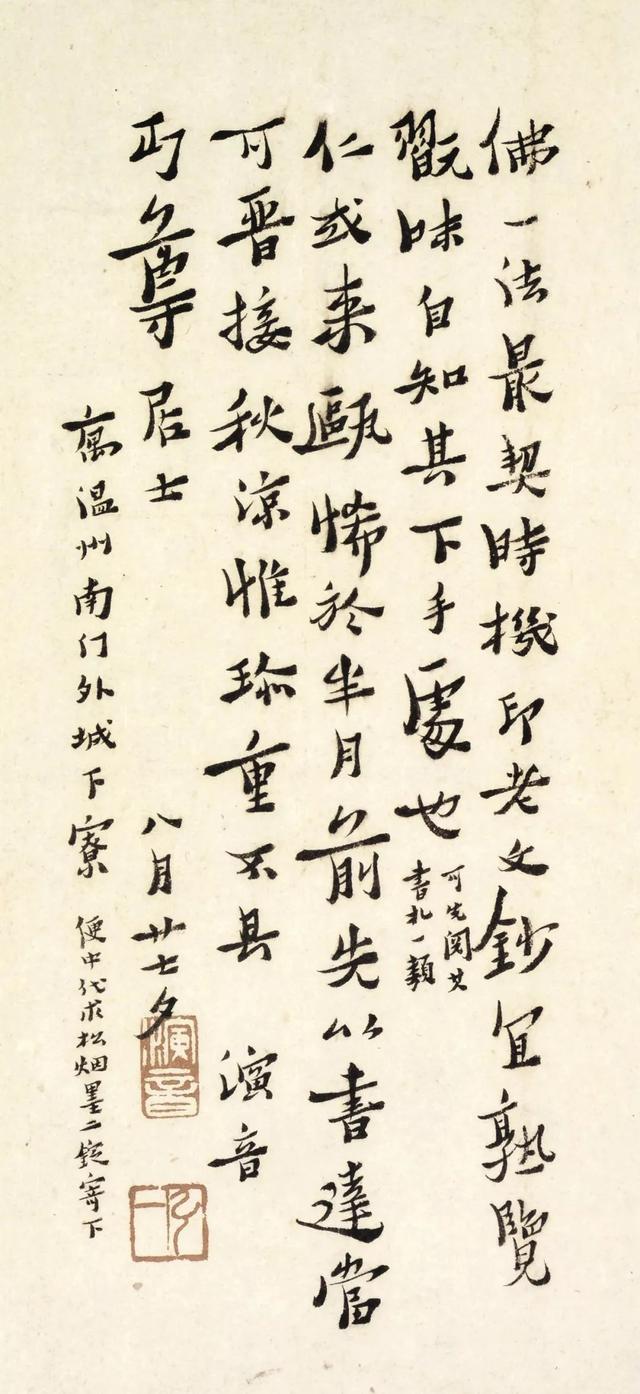 佛一法最契時機印老文鈔宜熟覽
翫味自知其下手處也
可先閱其
書札一類
仁或来甌悕於半月前先以書達當
可晋接秋凉惟珎重不具 演音
丏尊居士 八月廿七夕
寓温州南门外城下寮 便中代求松烟墨二錠寄下
演音
弘一